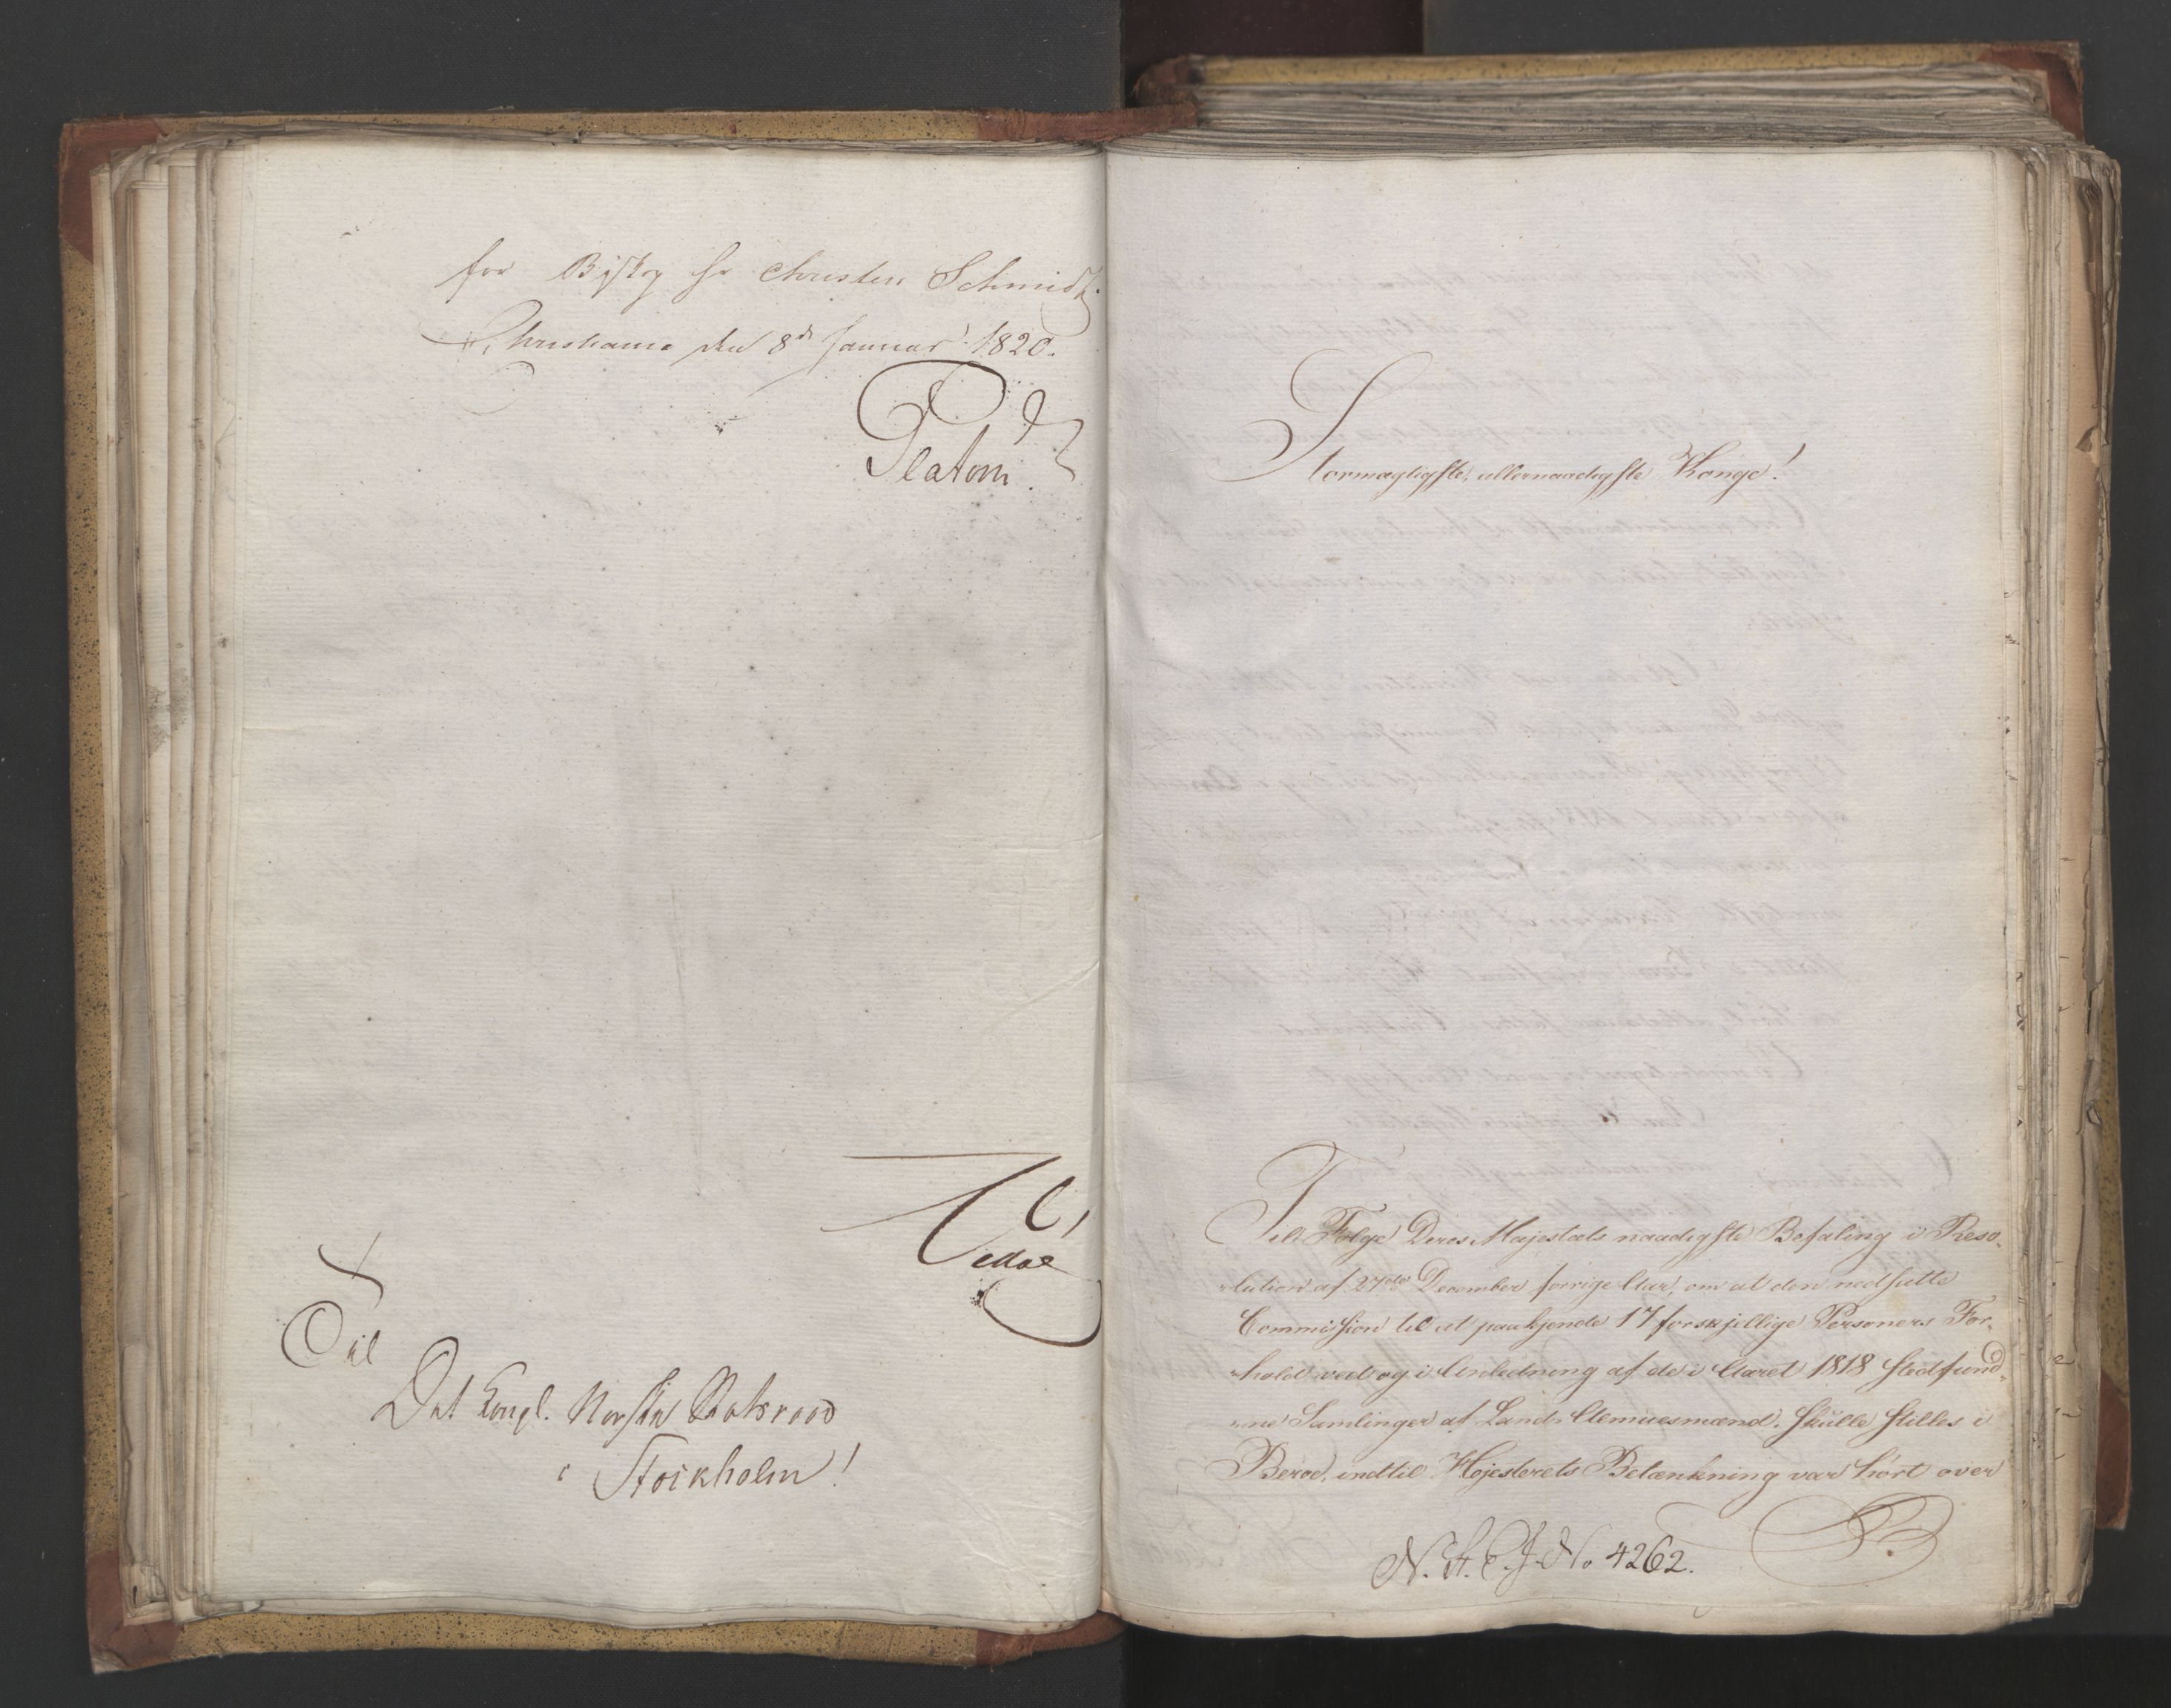 for Biskop Hr Christen Schmidt.
Christiania den 8de Januar 1820.
Platou.
Til
Det Kongl. Norske Statsraad
i Stockholm!
Stormægtigste, allernaadigste Konge!
Til Følge Deres Majestæts naadigste Befaling i Reso-
lution af 27de December forrige Aar, om at den nedsatte
Commission til at paakjende 17 forskjellige Personers For-
hold ved og i Anledning af de i Aaret 1818 stedfund-
ne Samlinger af Lands Almuesmænd, skulle stilles i
Beroe, indtil Højesterets Betænkning var hørt over
N. St. E. J. No 4262.